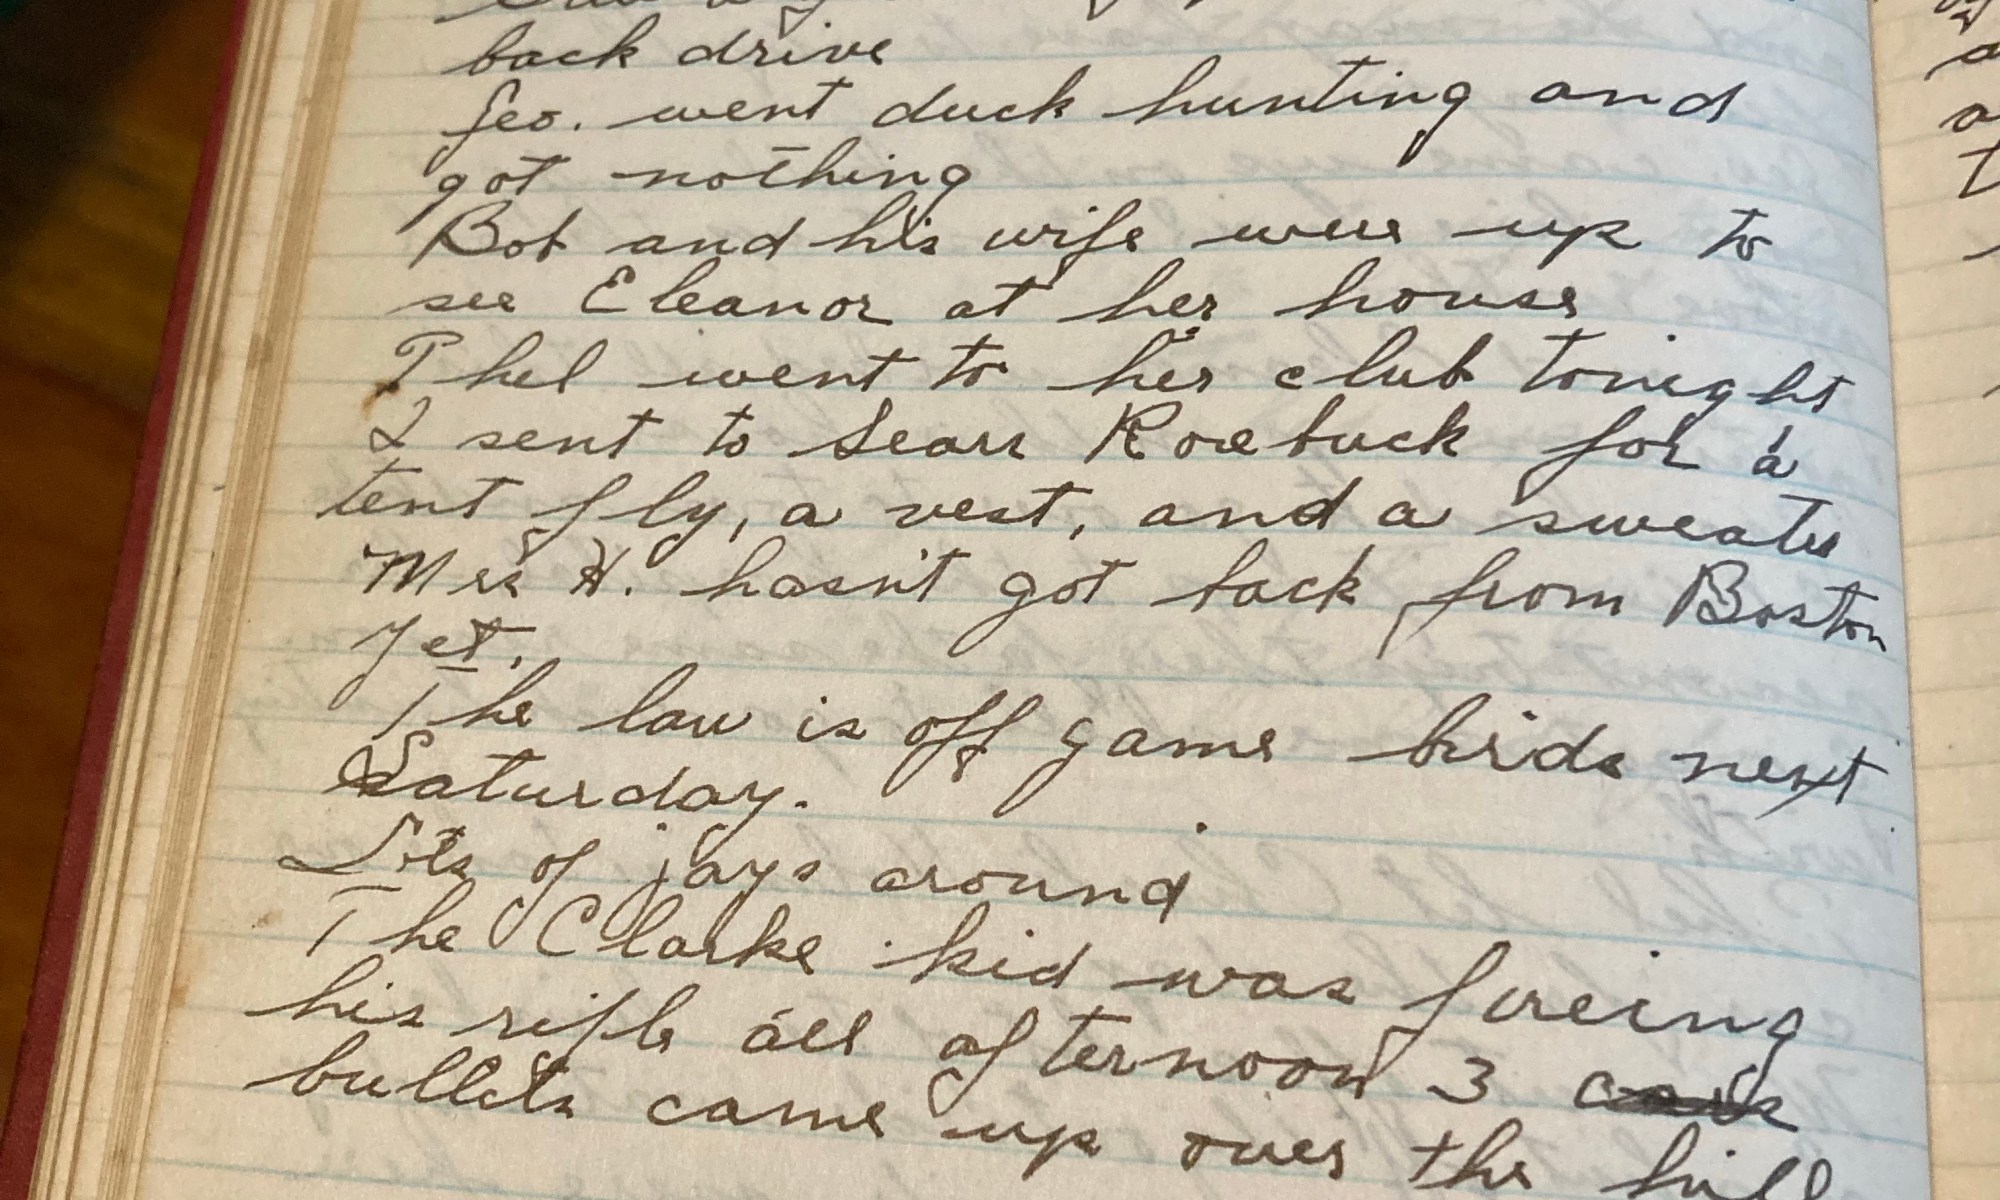 back drive
Geo. went duck hunting and
got nothing
Bob and his wife were up to
see Eleanor at her house
Phel went to her club tonight
I sent to Sears Roebuck for a
tent fly, a vest, and a sweater
Mrs H. hasn't got back from Boston
yet.
The law is off game birds next
Saturday.
Lots of jays around
The Clarke kid was fireing
his rifle all afternoon 3
bullets came up over the hill